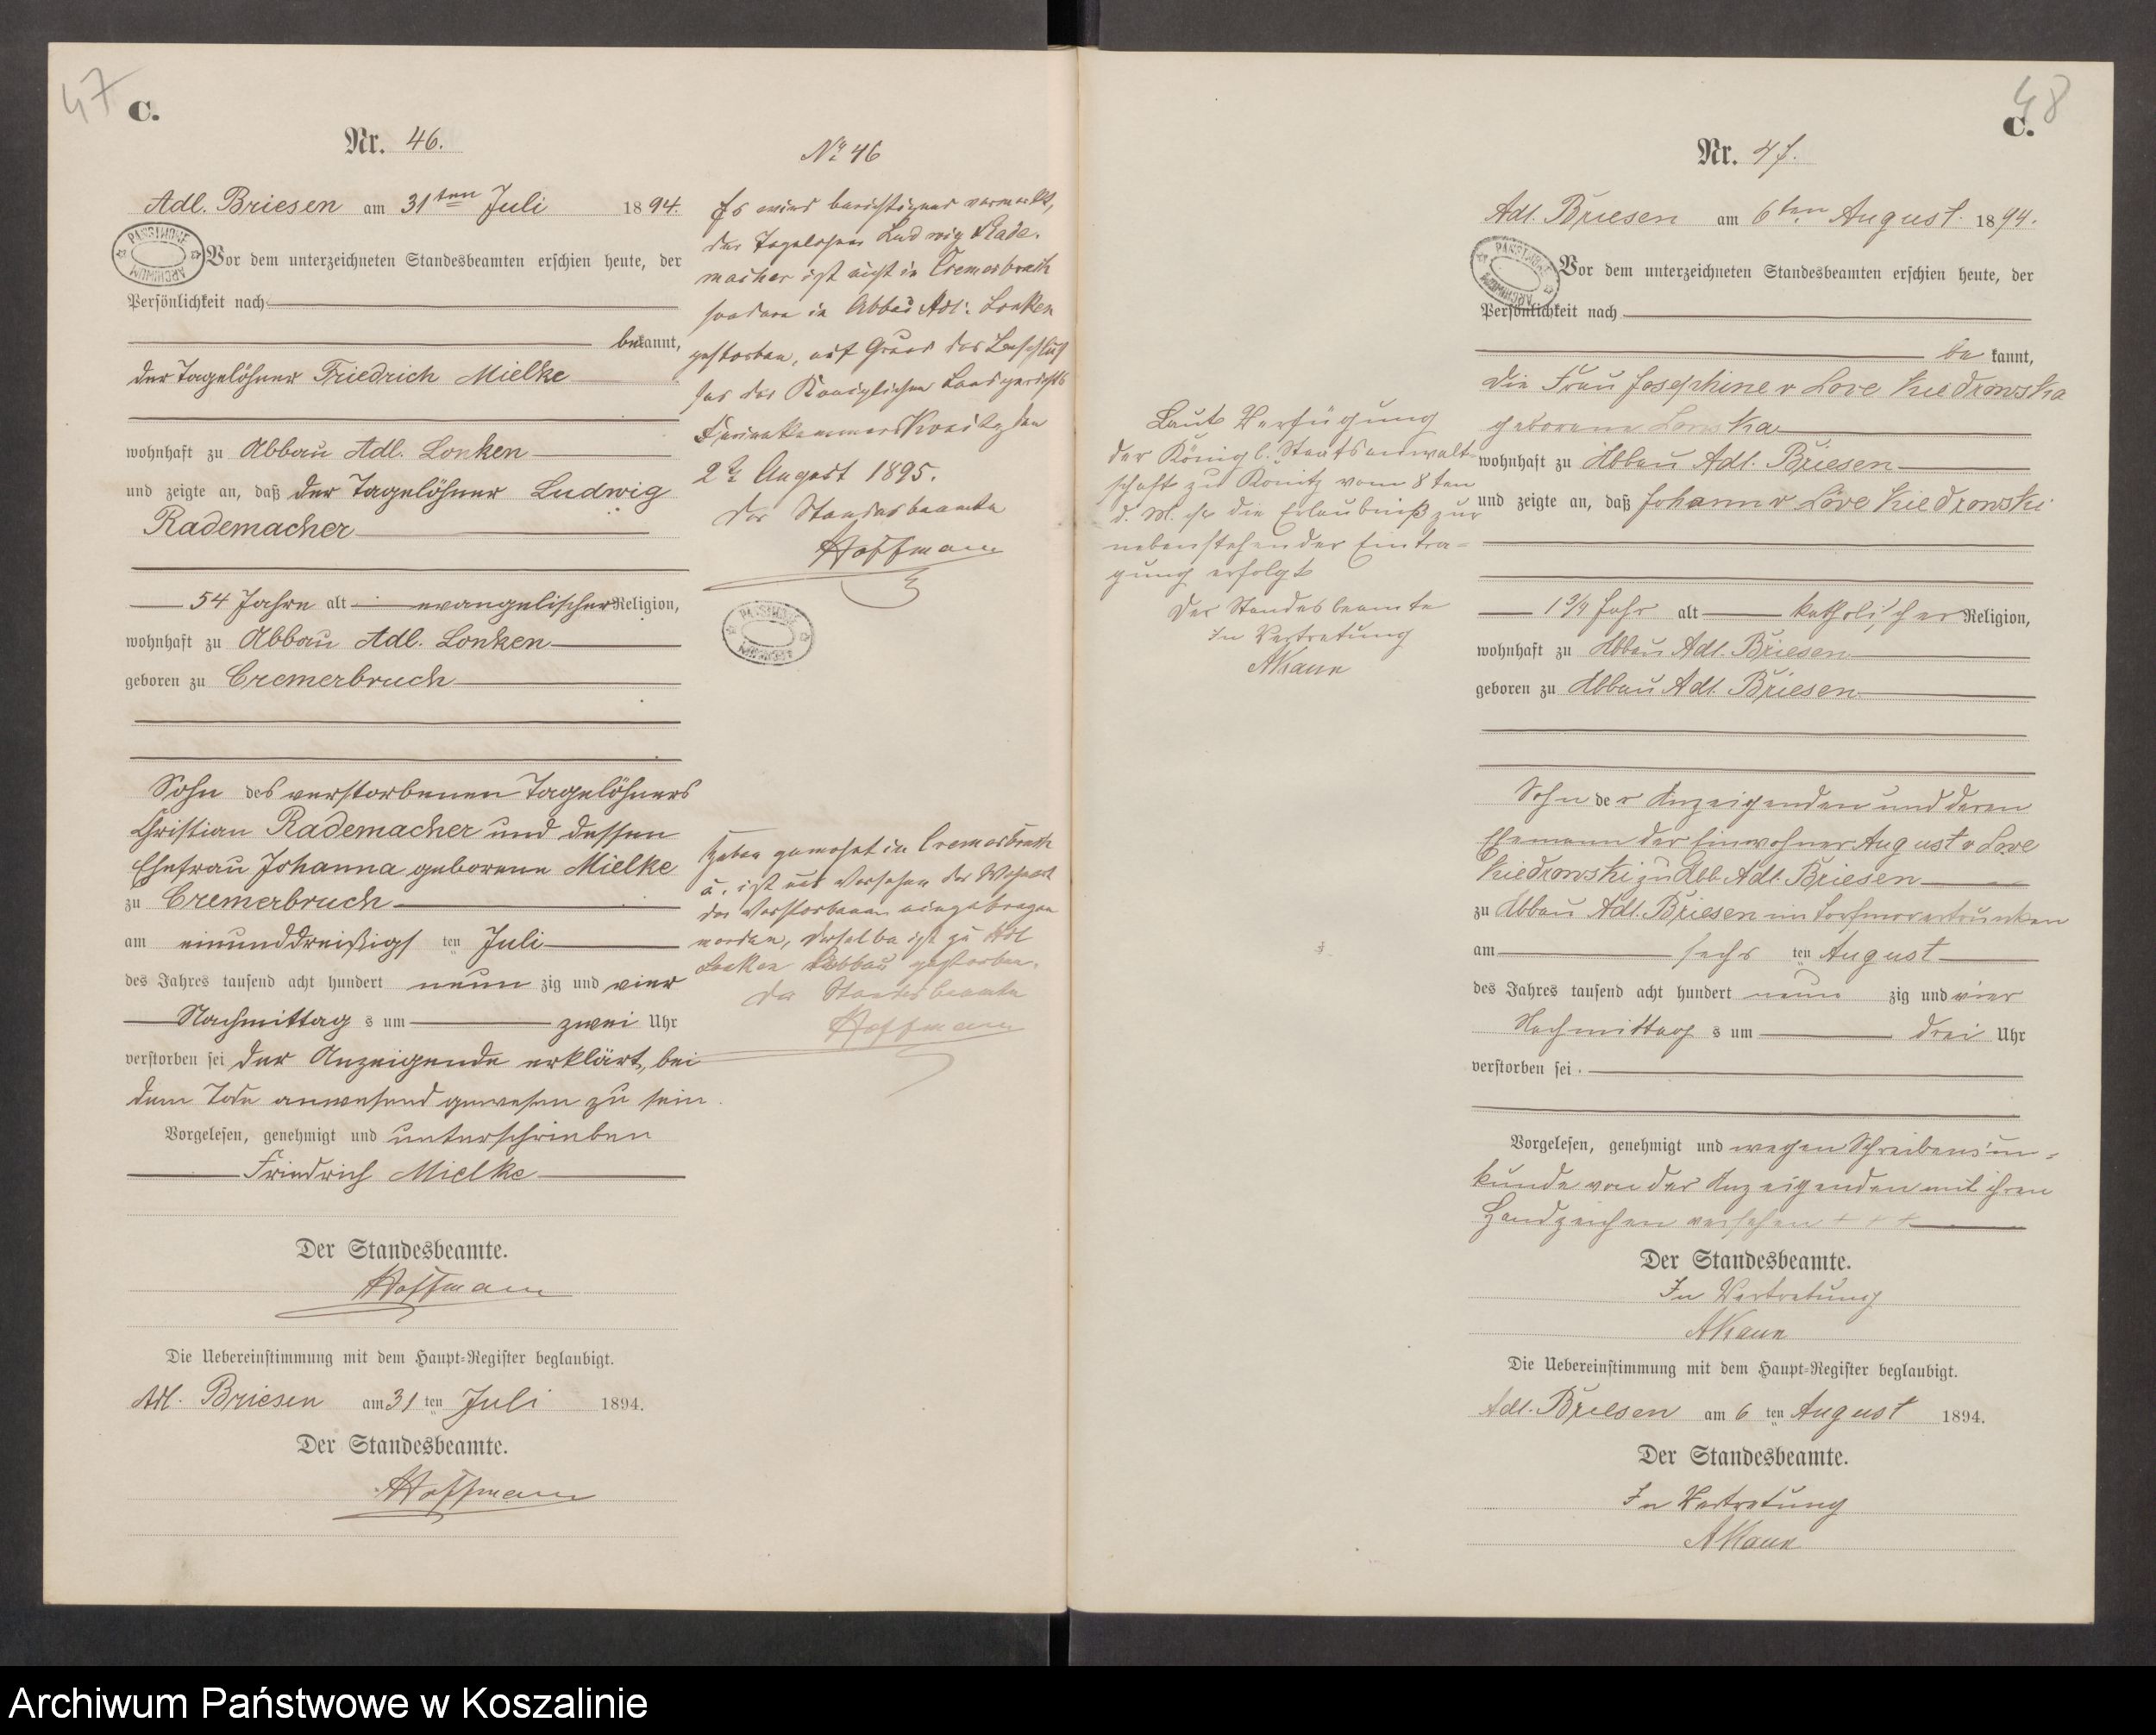 47
C.
Nr. 46.
Adl. Briesen am 31ten Juli 1894.
Vor dem unterzeichneten Standesbeamten erschien heute, der
Persönlichkeit nach
bekannt,
der Tagelöhner Friedrich Mielke
wohnhaft zu Abbau Adl. Lonken
und zeigte an, daß der Tagelöhner Ludwig
Rademacher
54 Jahre alt evangelischer Religion,
wohnhaft zu Abbau Adl. Lonken
geboren zu Cremerbruch
Sohn des verstorbenen Tagelöhners
Christian Rademacher und dessen
Ehefrau Johanna geborene Mielke
zu Cremerbruch
am einunddreißigs ten Juli
des Jahres tausend acht hundert neun zig und vier
Nachmittag s um zwei Uhr
verstorben sei der Anzeigende erklärt, bei
dem Tode anwesend gewesen zu sein.
Vorgelesen, genehmigt und unterschrieben
Friedrich Mielke
Der Standesbeamte.
Hoffmann
Die Uebereinstimmung mit dem Haupt-Register beglaubigt.
Adl. Briesen am 31 ten Juli 1894.
Der Standesbeamte.
Hoffmann
No 46
Es wird berichtigend vermerkt,
der Tagelöhner Ludwig Rade-
macher ist nicht in Cremerbruch
sondern in Abbau Adl. Lonken
gestorben, auf Grund des Beschlus
ses des Königlichen Landgerichts
Ferienkammer Konitz den
August 1895.
Der Standesbeamte
Hoffmann
haben gewohnt in Cremerbruch
u. ist aus Versehen der Wohnort
des Verstorbenen eingetragen
worden, derselbe ist zu Adl
Lonken Abbau gestorben.
Der Standesbeamte
Hoffmann
48
C.
Nr. 47.
Adl. Briesen am 6ten August 1894.
Vor dem unterzeichneten Standesbeamten erschien heute, der
Persönlichkeit nach
be kannt,
die Frau Josephine v Love Kiedrowska
geborene
wohnhaft zu Abbau Adl. Briesen
und zeigte an, daß Johann v Löve Kiedrowski
1 3/4 Jahr alt katholischer Religion,
wohnhaft zu Abbau Adl. Briesen
geboren zu Abbau Adl. Briesen
Sohn der Anzeigenden und deren
Ehemann der Einwohner August v Love
Kiedrowski zu Abb. Adl. Briesen
zu Abbau Adl. Briesen im Torfmoor ertrunken
am sechs ten August
des Jahres tausend acht hundert neun zig und vier
Nachmittag s um drei Uhr
verstorben sei
Vorgelesen, genehmigt und wegen Schreibensun-
kunde von der Anzeigenden mit ihren
Handzeichen versehen + + +
Der Standesbeamte.
In Vertretung
AKaun
Die Uebereinstimmung mit dem Haupt-Register beglaubigt.
Adl. Briesen am 6 ten August 1894.
Der Standesbeamte.
In Vertretung
AKaun
Laut Verfügung
der Königl. Staatsanwalt-
schaft zu Konitz vom 8ten
d. M. ist die Erlaubniß zur
nebenstehender Eintra-
gung erfolgt
Der Standesbeamte
In Vertretung
AKaun
Archiwum Państwowe w Koszalinie